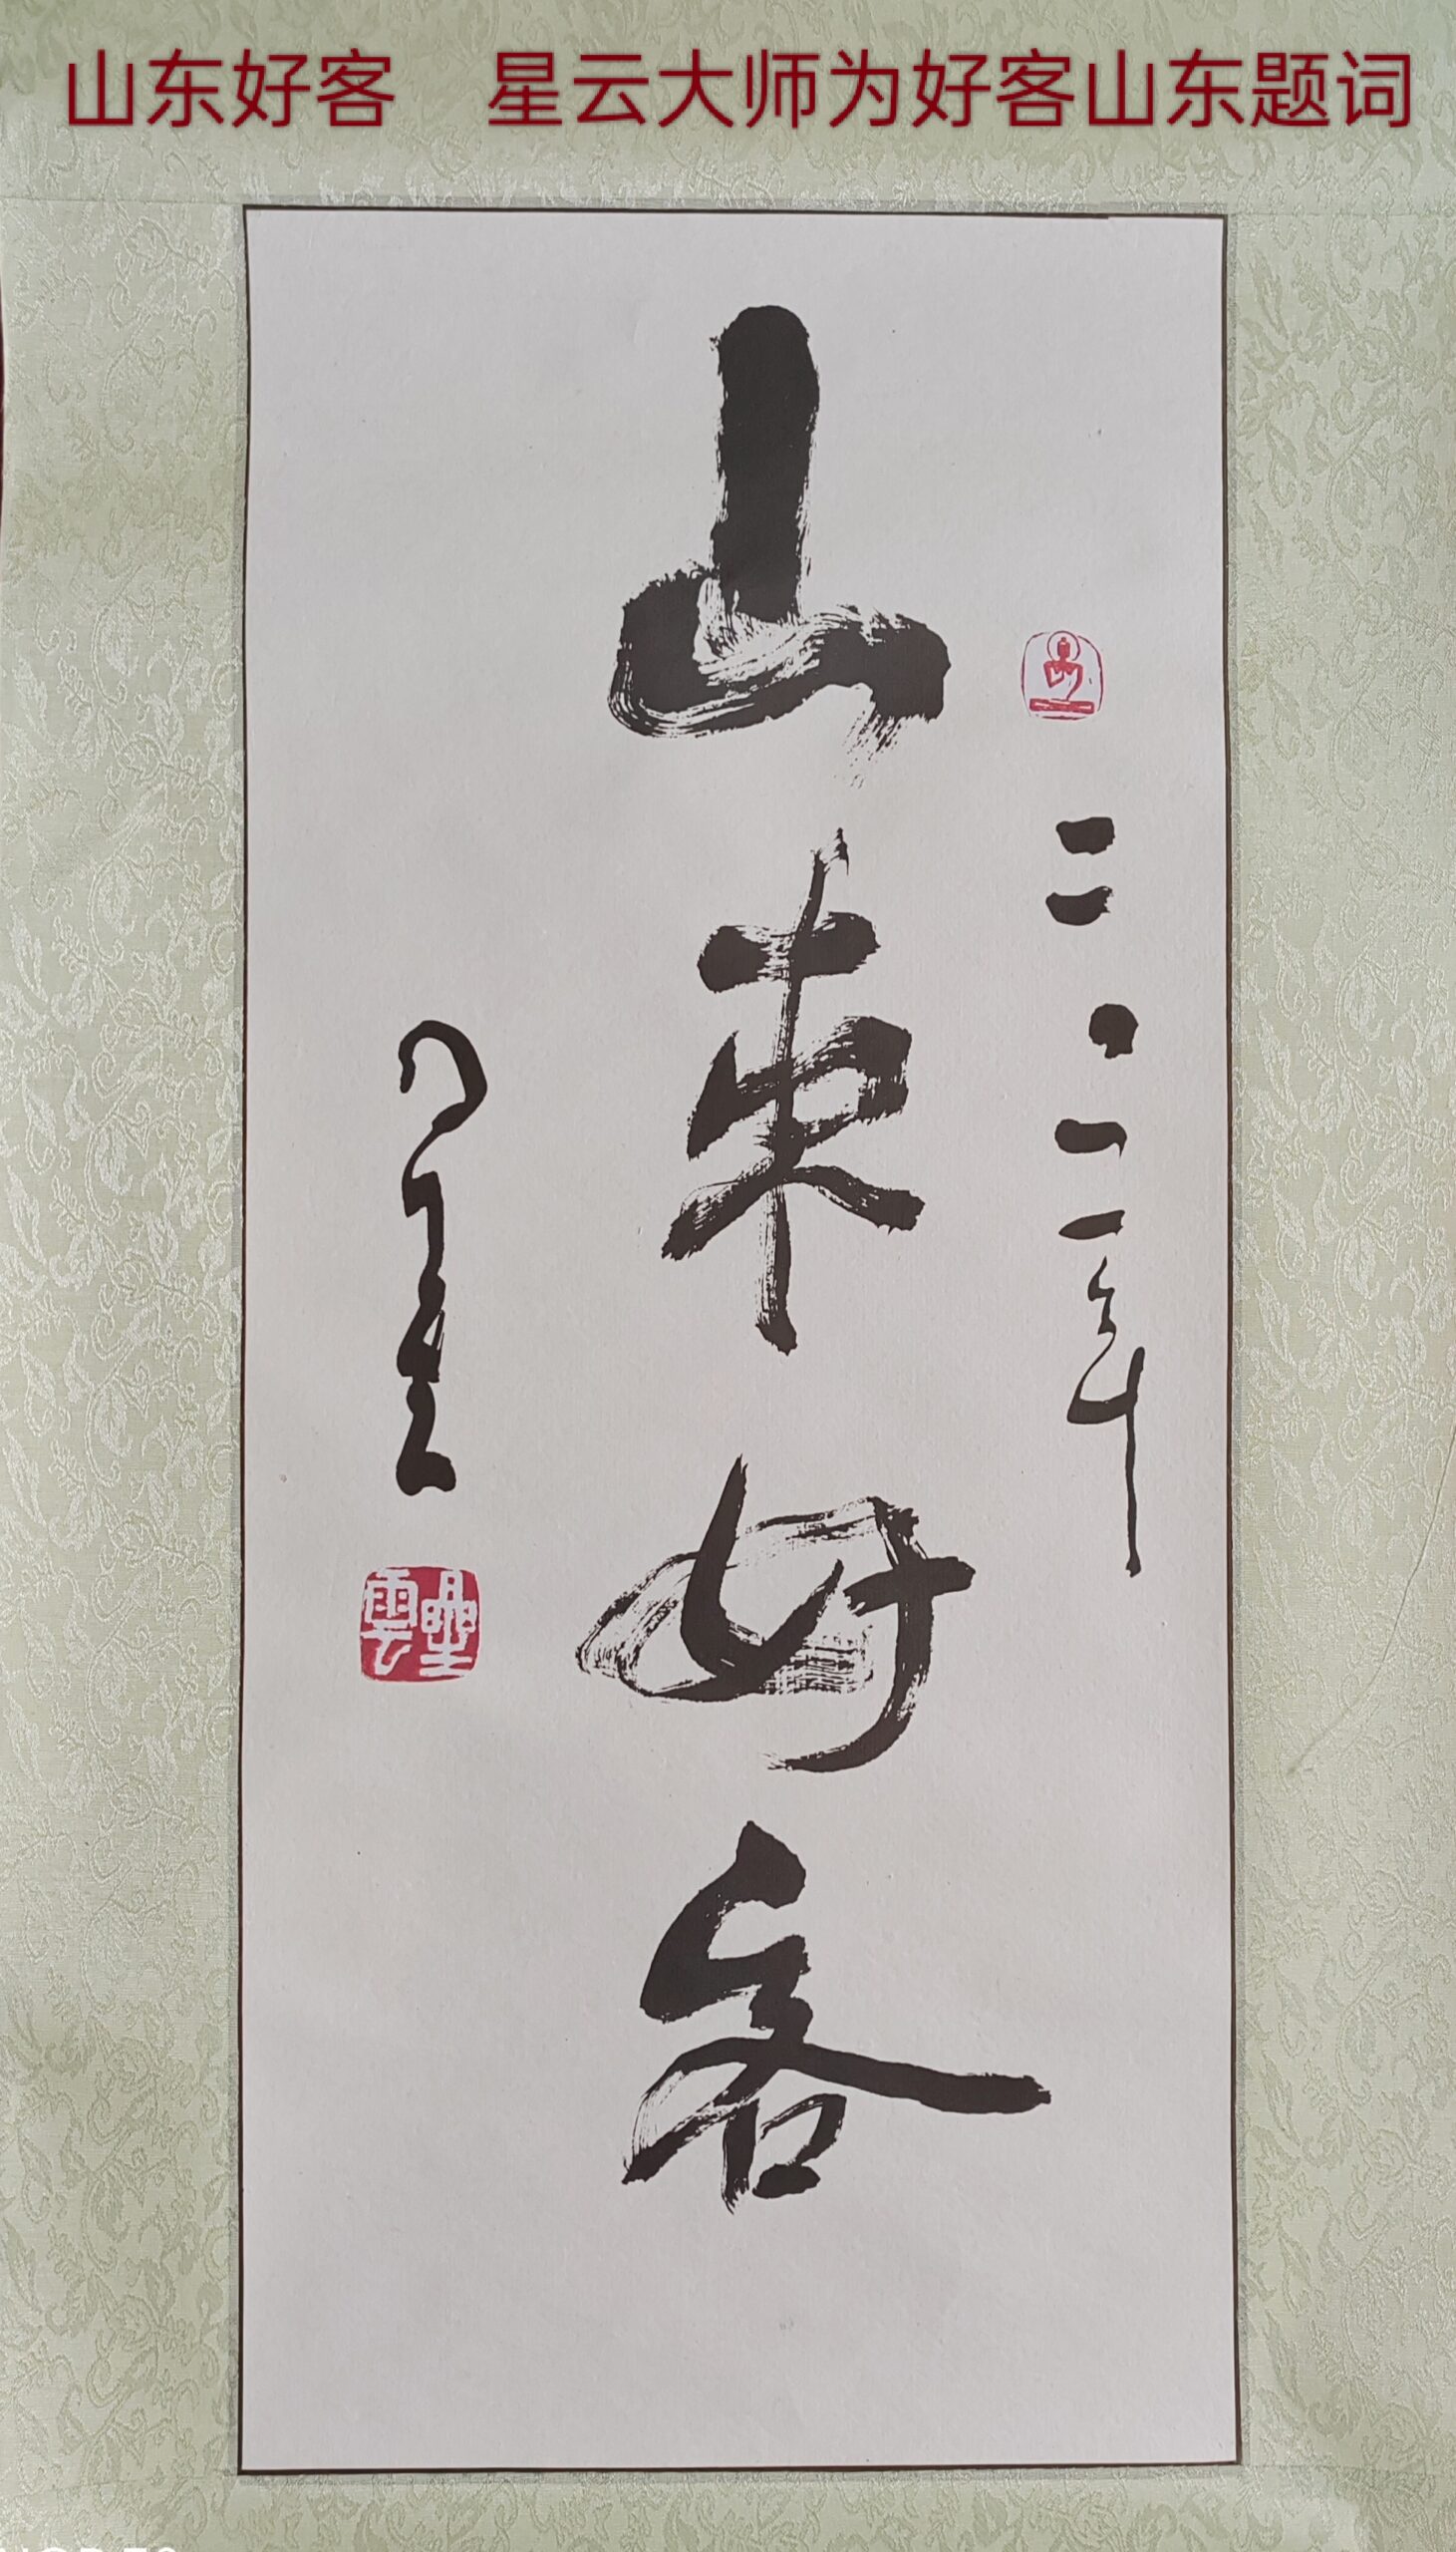 山东好客 星云大师为好客山东题词
二〇一一年
山東好客
星雲